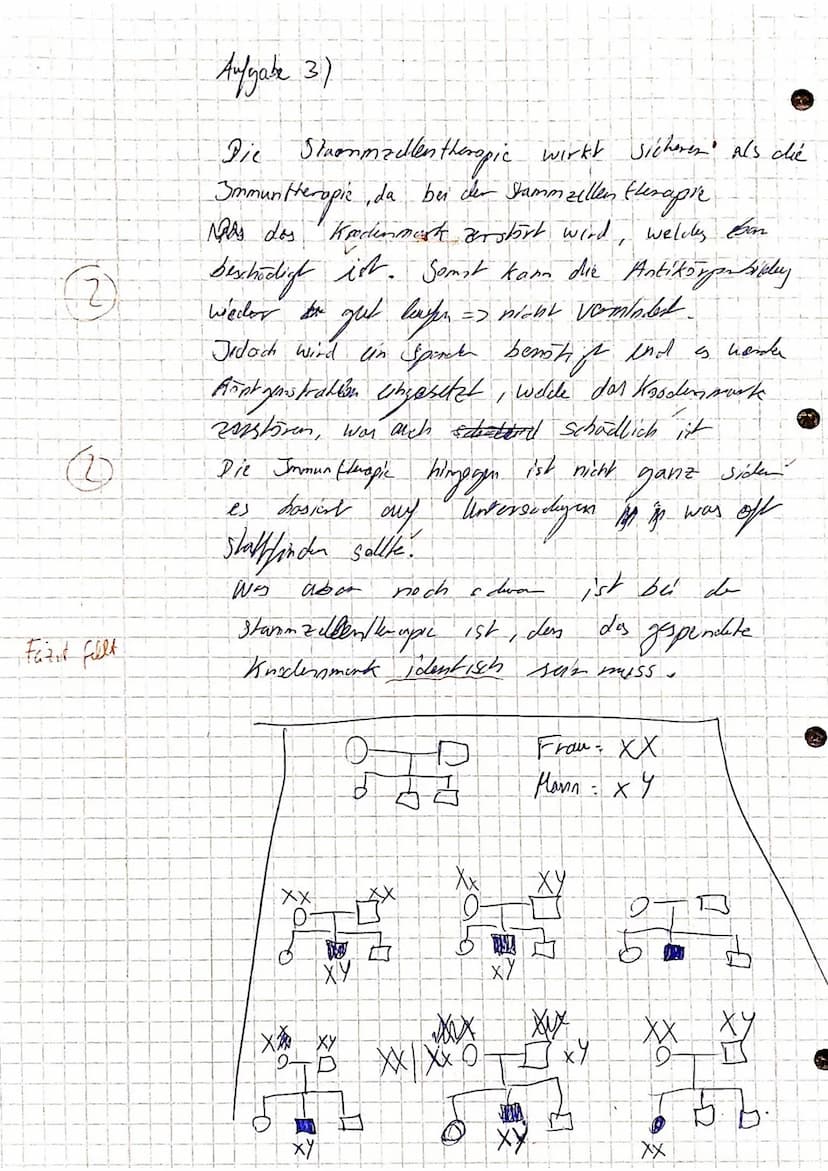 Aufgabe 3)
Die Stammzellentherapie wirkt sicherer als die
Immuntherapie, da bei der Stammzellentherapie
das Knochenmark zerstört wird, welches eben
beschädigt ist. Somit kann die Antikörperbildung
2
wieder gut laufen => nicht vermindert.
Jedoch wird ein Spender benötigt und es werden
Röntgenstrahlen eingesetzt, welche das Knochenmark
zerstören, was auch schädlich ist
2
Die Immuntherapie hingegen ist nicht ganz sicher
es basiert auf Untersuchungen was oft
stattfinden sollte.
Was aber noch ist bei der
Stammzellentherapie ist, dass das gespendete
Fazit fehlt
Knochenmark identisch sein muss.
Frau = XX
Mann = XY
XX XX
Xx XY
XY
XY
XY
XX | Xx XY
XX XY
XY
XY
XX